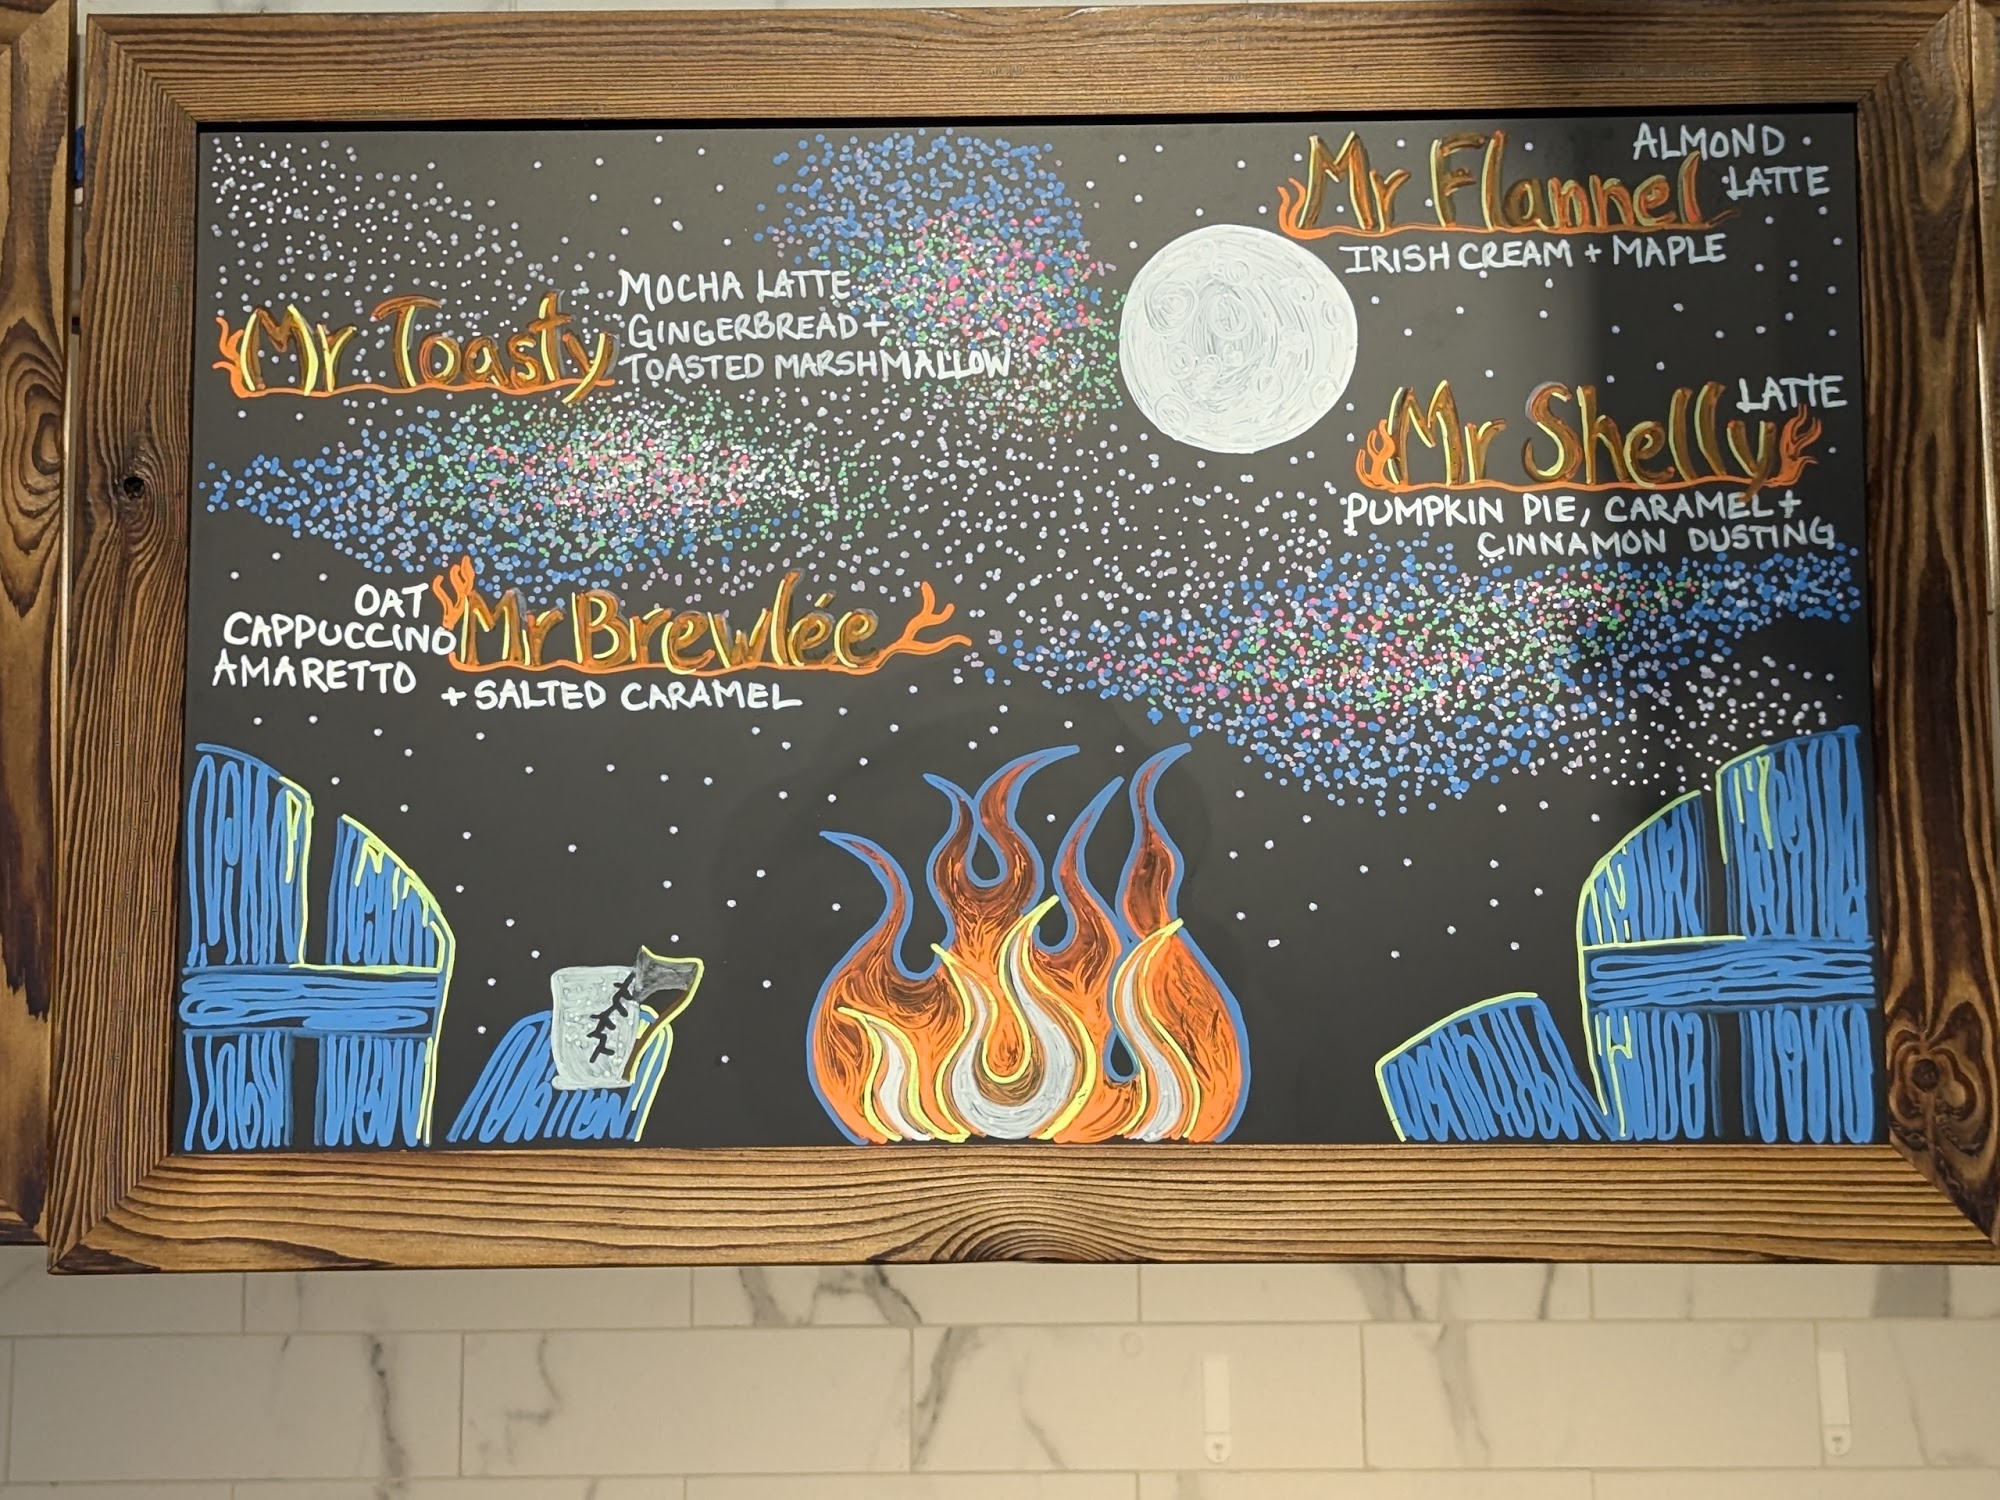 Mr Toasty
MOCHA LATTE
GINGERBREAD +
TOASTED MARSHMALLOW
OAT
CAPPUCCINO
AMARETTO
Mr Brewlée
+ SALTED CARAMEL
Mr Flannel
ALMOND
LATTE
IRISH CREAM + MAPLE
Mr Shelly
LATTE
PUMPKIN PIE, CARAMEL +
CINNAMON DUSTING